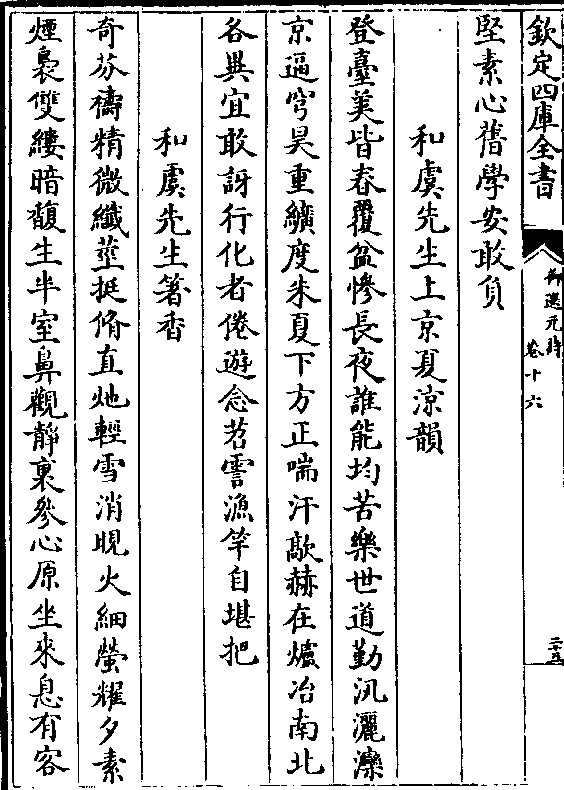 欽定四庫全書
御選元詩
卷十六
二十五
堅素心舊學安敢負
和虞先生上京夏涼韻
登臺美皆春覆盆慘長夜誰能均苦樂世道勤汛灑灤
京逼穹昊重纊度朱夏下方正喘汗歊赫在爐冶南北
各異宜敢訝行化者倦遊念苕霅漁竿自堪把
和虞先生箸香
奇芬擣精微纖莖挺脩直灺輕雪消晛火細螢耀夕素
煙裊雙縷暗馥生半室鼻觀靜裏參心原坐來息有客